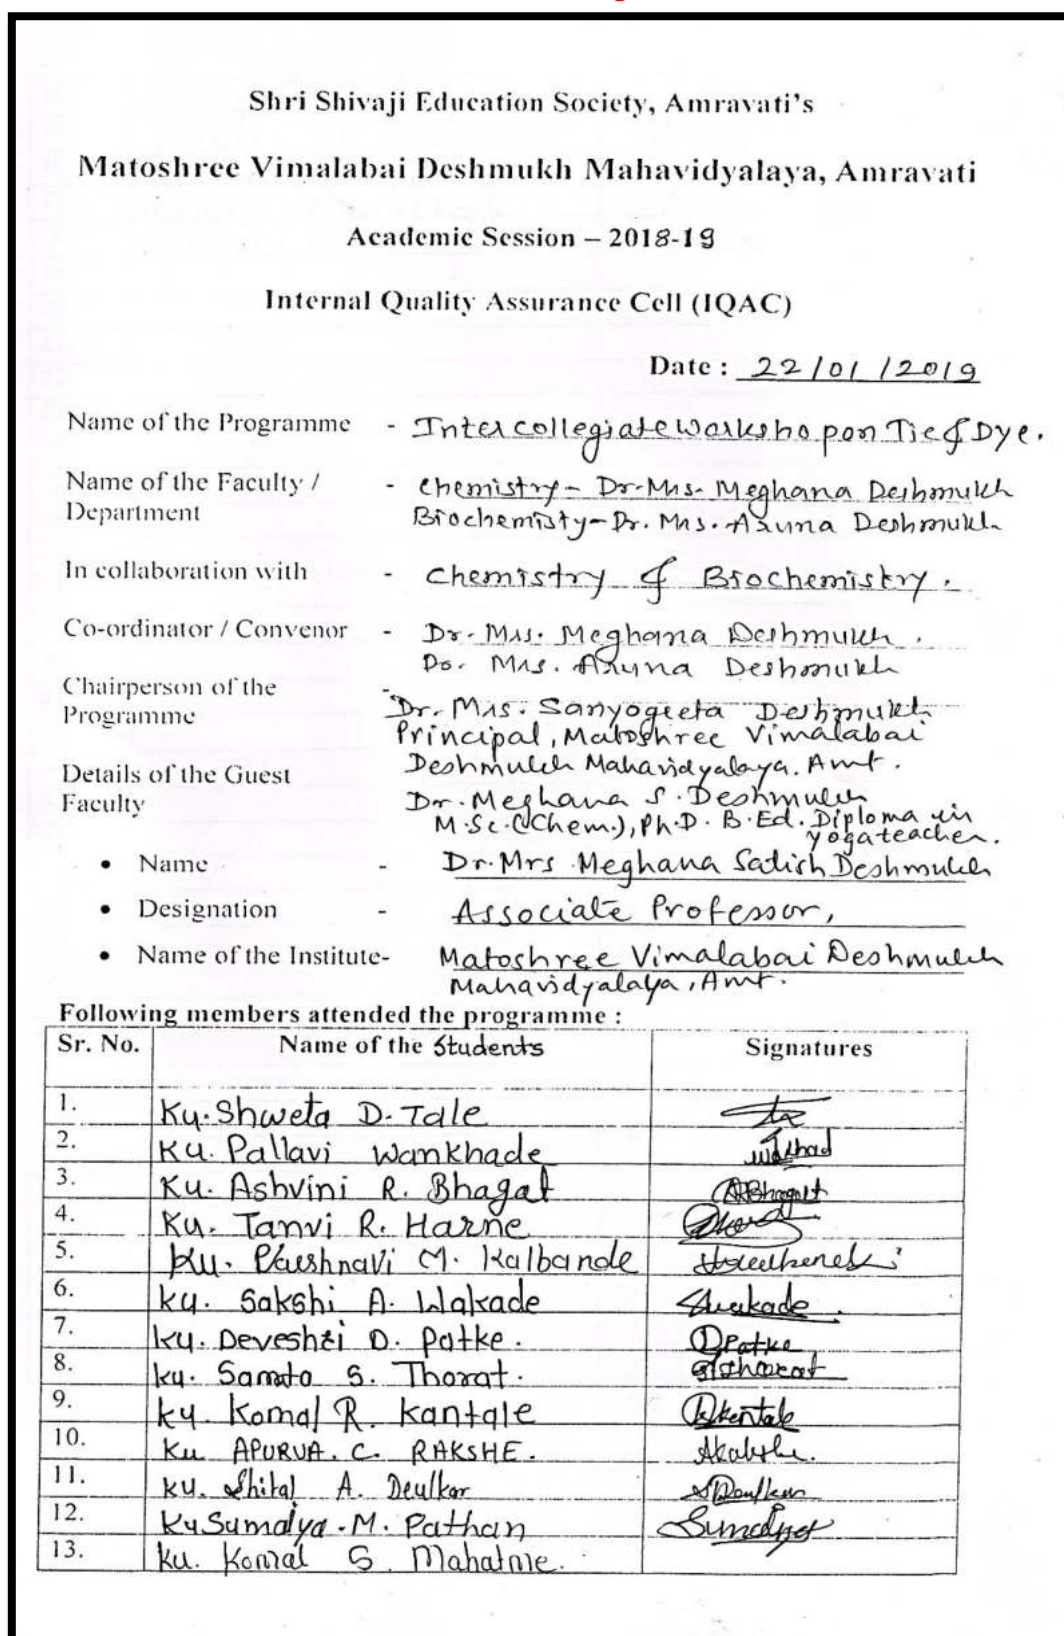 Shri Shivaji Education Society, Amravati's
Matoshree Vimalabai Deshmukh Mahavidyalaya, Amravati
Academic Session – 2018-19
Internal Quality Assurance Cell (IQAC)
Date : 22/01/2019
Name of the Programme - Intercollegiate Workshop on Tie & Dye.
Name of the Faculty / - Chemistry - Dr. Mrs. Meghana Deshmukh
Department Biochemisty - Dr. Mrs. Aruna Deshmukh
In collaboration with - Chemistry & Biochemistry.
Co-ordinator / Convenor - Dr. Mrs. Meghana Deshmukh.
Dr. Mrs. Aruna Deshmukh
Chairperson of the -
Programme Dr. Mrs. Sanyogeeta Deshmukh
Principal, Matoshree Vimalabai
Details of the Guest Deshmukh Mahavidyalaya. Amt.
Faculty Dr. Meghana S. Deshmukh
M.Sc. (Chem.), Ph.D. B.Ed. Diploma in
yoga teacher.
• Name - Dr. Mrs Meghana Satish Deshmukh
• Designation - Associate Professor,
• Name of the Institute- Matoshree Vimalabai Deshmukh
Mahavidyalaya, Amt.
Following members attended the programme :
Sr. No. Name of the Students Signatures
1. Ku. Shweta D. Tale
2. Ku. Pallavi Wankhade
3. Ku. Ashvini R. Bhagat ABhagat
4. Ku. Tanvi R. Harne
5. Ku. Vaishnavi M. Kalbande
6. Ku. Sakshi A. Wakade Swakade
7. Ku. Deveshri D. Patke. DPatke
8. Ku. Samata S. Thorat.
9. Ku. Komal R. Kantale
10. Ku APURVA. C. RAKSHE.
11. Ku. Shital A. Deulkar SDeulkar
12. Ku Sumaiya. M. Pathan Sumaiya
13. Ku. Komal S. Mahatme.